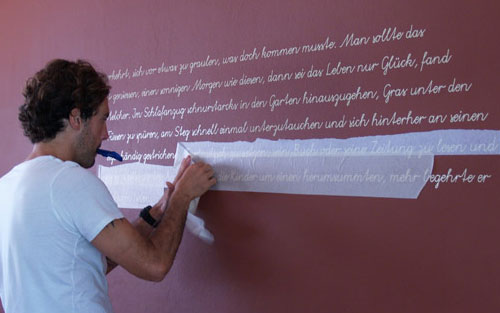 verkehrt, sich vor etwas zu graulen, was doch kommen musste. Man sollte das
geniesen; einen sonnigen Morgen wie diesen, dann sei das Leben nur Glück, fand
Melchior. Im Schlafanzug schnurstarcks in den Garten hinauszugehen, Gras unter den
Füssen zu spüren, am Steg schnell einmal unterzutauchen und sich hinterher an seinen
ständig gestrichenen Buch oder eine Zeitung zu lesen und
die Kinder um einen herumsummten, mehr begehrte er